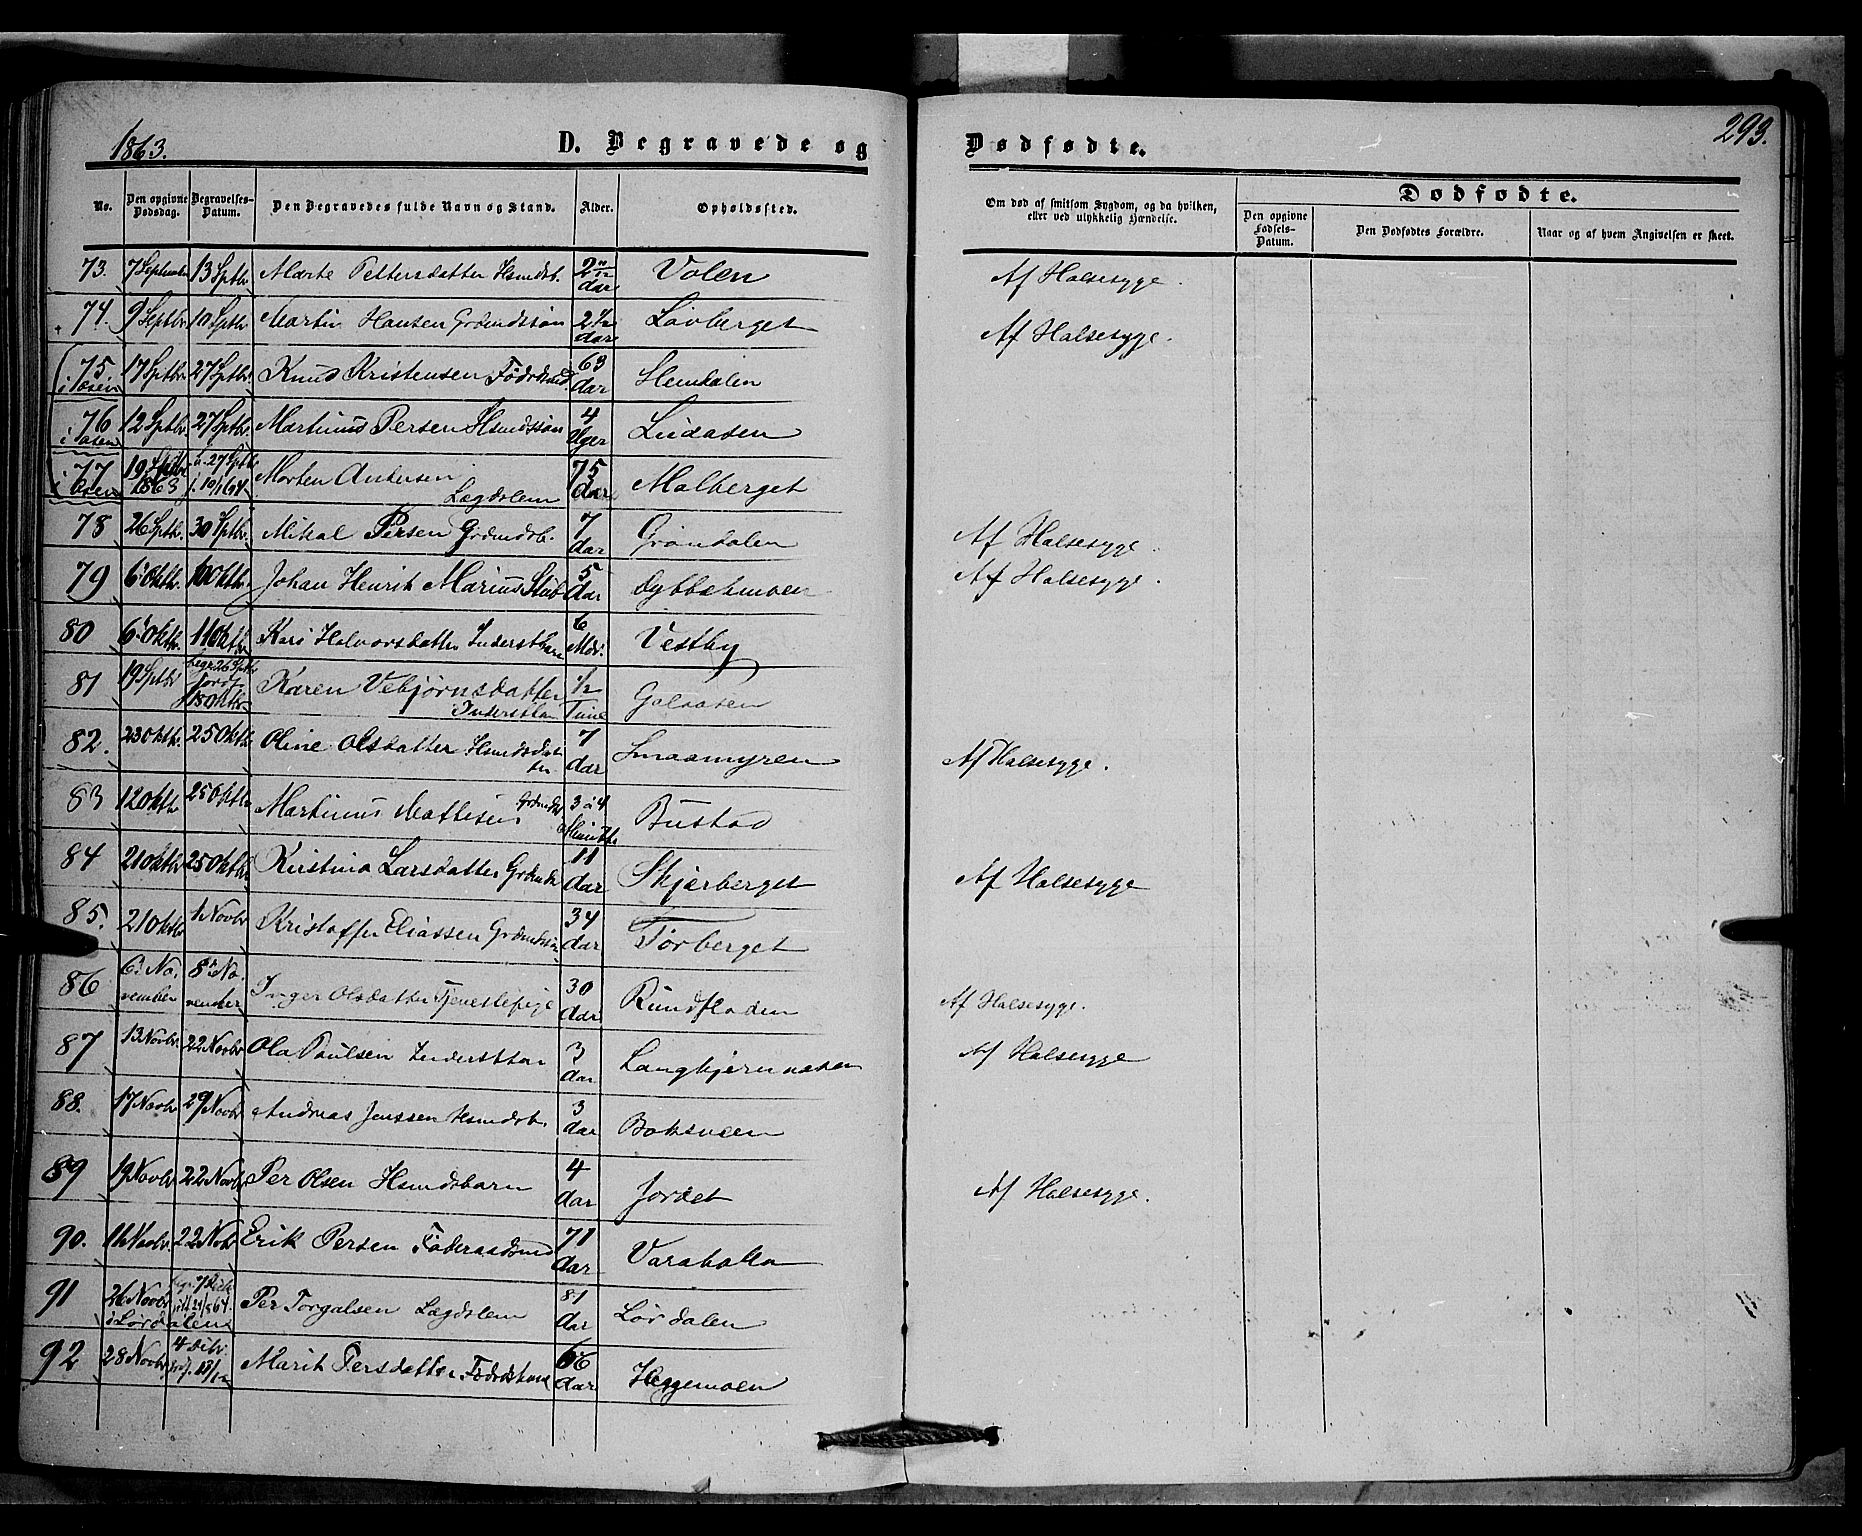 1863.
D. Begravede og
Dødfødte.
293.
No.
Den opgivne Dødsdag.
Begravelses-Datum.
Den Begravedes fulde Navn og Stand.
Alder.
Opholdssted.
Om død af smitsom Sygdom, og da hvilken, eller ved ulykkelig Hændelse.
Dødfødte.
Den opgivne Fødsels-Datum.
Den Dødfødtes Forældre.
Naar og af hvem Angivelsen er skeet.
73. 7 September 13 Sptbr Marte Pettersdatter Hsmdsb. 2 11/12 Aar Volen Af Halsesyge.
74. 9 Septbr 10 Sptbr Martin Hansen Grdmdssøn 2 1/2 Aar Løvberget Af Halsesyge.
75. i Aasen 17 Sptbr 27 Sptbr Knud Kristensen Føderdsmd 63 Aar Hemdalen
76 i Aasen 12 Sptbr. 27 Sptbr. Martinus Persen Hsmdssøn 4 Uger Liidaasen
77 i Aasen 19 Sptbr 1863 b. 27 Sptbr j. 10/1 64 Morten Andersen Lægdslem 75 Aar Malberget
78 26 Sptbr. 30 Sptbr. Mikal Persen Grdmdsb. 7 Aar Grøndalen Af Halsesyge.
79 6 Oktbr. 10 Oktbr. Johan Henrik Marius Stub 5 Aar Lybbekmoen Af Halsesyge.
80 6 Oktbr. 11 Oktbr Kari Halvorsdatter Inderstbarn 6 Mdr. Vestby
81 19 Sptbr begr 26 Sptbr jordf 18 Oktbr Karen Vebjørnsdatter Inderstbarn 1/2 Time Galaasen
82. 23 Oktbr. 25 Oktbr. Oline Olsdatter Hsmdsdatter 7 Aar Smaamyren Af Halsesyge.
83 12 Oktbr 25 Oktbr Martinus Mattisen Grdmdsb 3 à 4 Minutter Bustad
84 21 Oktbr 25 Oktbr. Kristina Larsdatter Grdmdsb 11 Aar Skjærberget Af Halsesyge
85. 21 Oktbr 1 Novbr Kristoffer Eliassen Grdmdssøn 34 Aar Tørberget
86 6. November 8. November Inger Olsdatter Tjenestepige 30 Aar Rundfloden Af Halsesyge.
87 13 Novbr. 22 Novbr Ola Paulsen Inderstbarn 3 Aar Langkjernaasen Af Halsesyge
88. 17 Novbr 29 Novbr Andreas Jenssen Hsmdsb. 3 Aar Boksveen
89 19 Novbr 22 Novbr Per Olsen Hsmdsbarn 4 Aar Jordet Af Halsesyge.
90. 16 Novbr. 22 Nvbr Erik Persen Føderaadsmd 71 Aar Varaholla
91 26 Novbr i Lørdalen begr. 7 Decbr jdf. 24/5 64. Per Torgalsen Lægdslem 81 Aar Lørdalen
92 28 Novbr 4 Dcbr. jdf. 18/12 Marit Persdatter Føderdskone 66 Aar Heggemoen